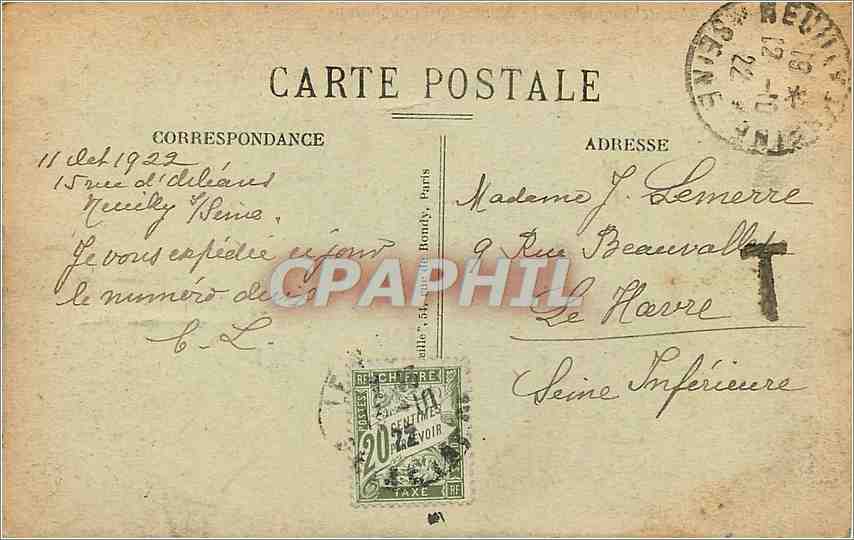 CARTE POSTALE
CORRESPONDANCE
11 Oct 1922
15 rue d'Orléans
Neuilly s/Seine.
Je vous expédie ce jour
le numéro
C. L.
eille", 54, rue de Bondy, Paris
ADRESSE
Madame J. Lemerre
9 Rue Beauvallet
Le Havre
Seine Inférieure
T
NEUILLY S SEINE
*SEINE*
19 *
12 -10
22
CPAPHIL
CHIFFRE
POSTES
RF
20 CENTIMES
À PERCEVOIR
TAXE
RF
10
22